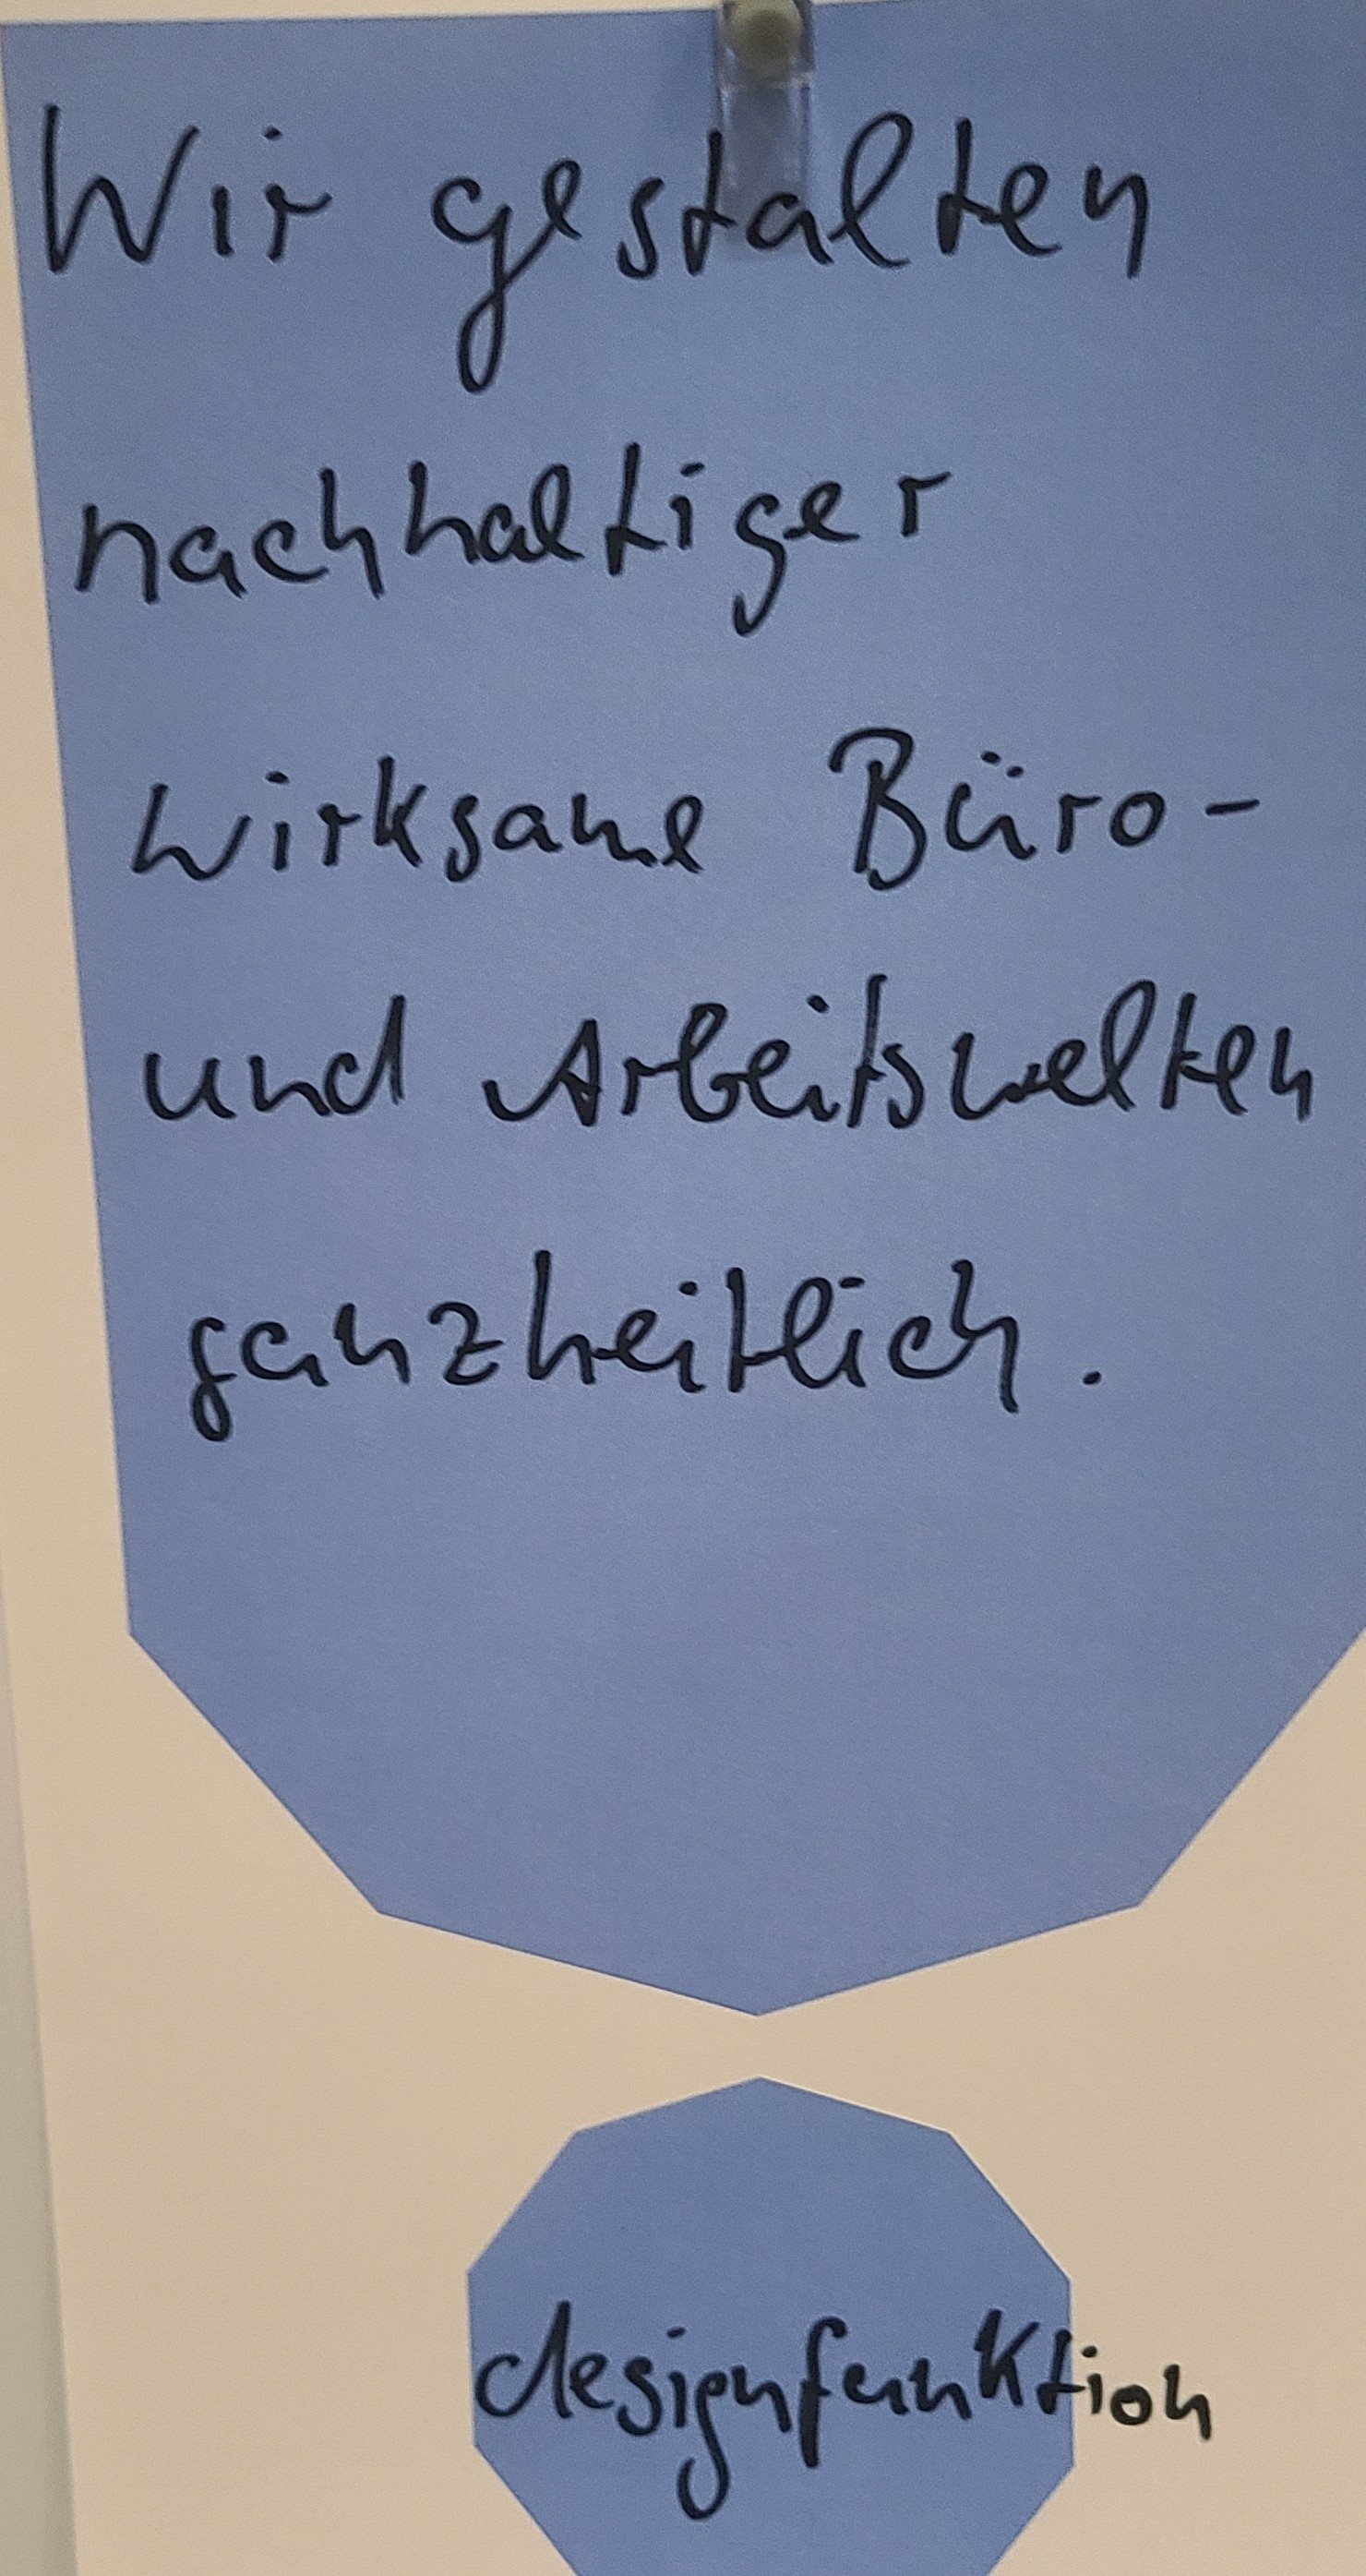 Wir gestalten
nachhaltiger
wirksame Büro-
und Arbeitswelten
ganzheitlich.
designfunktion